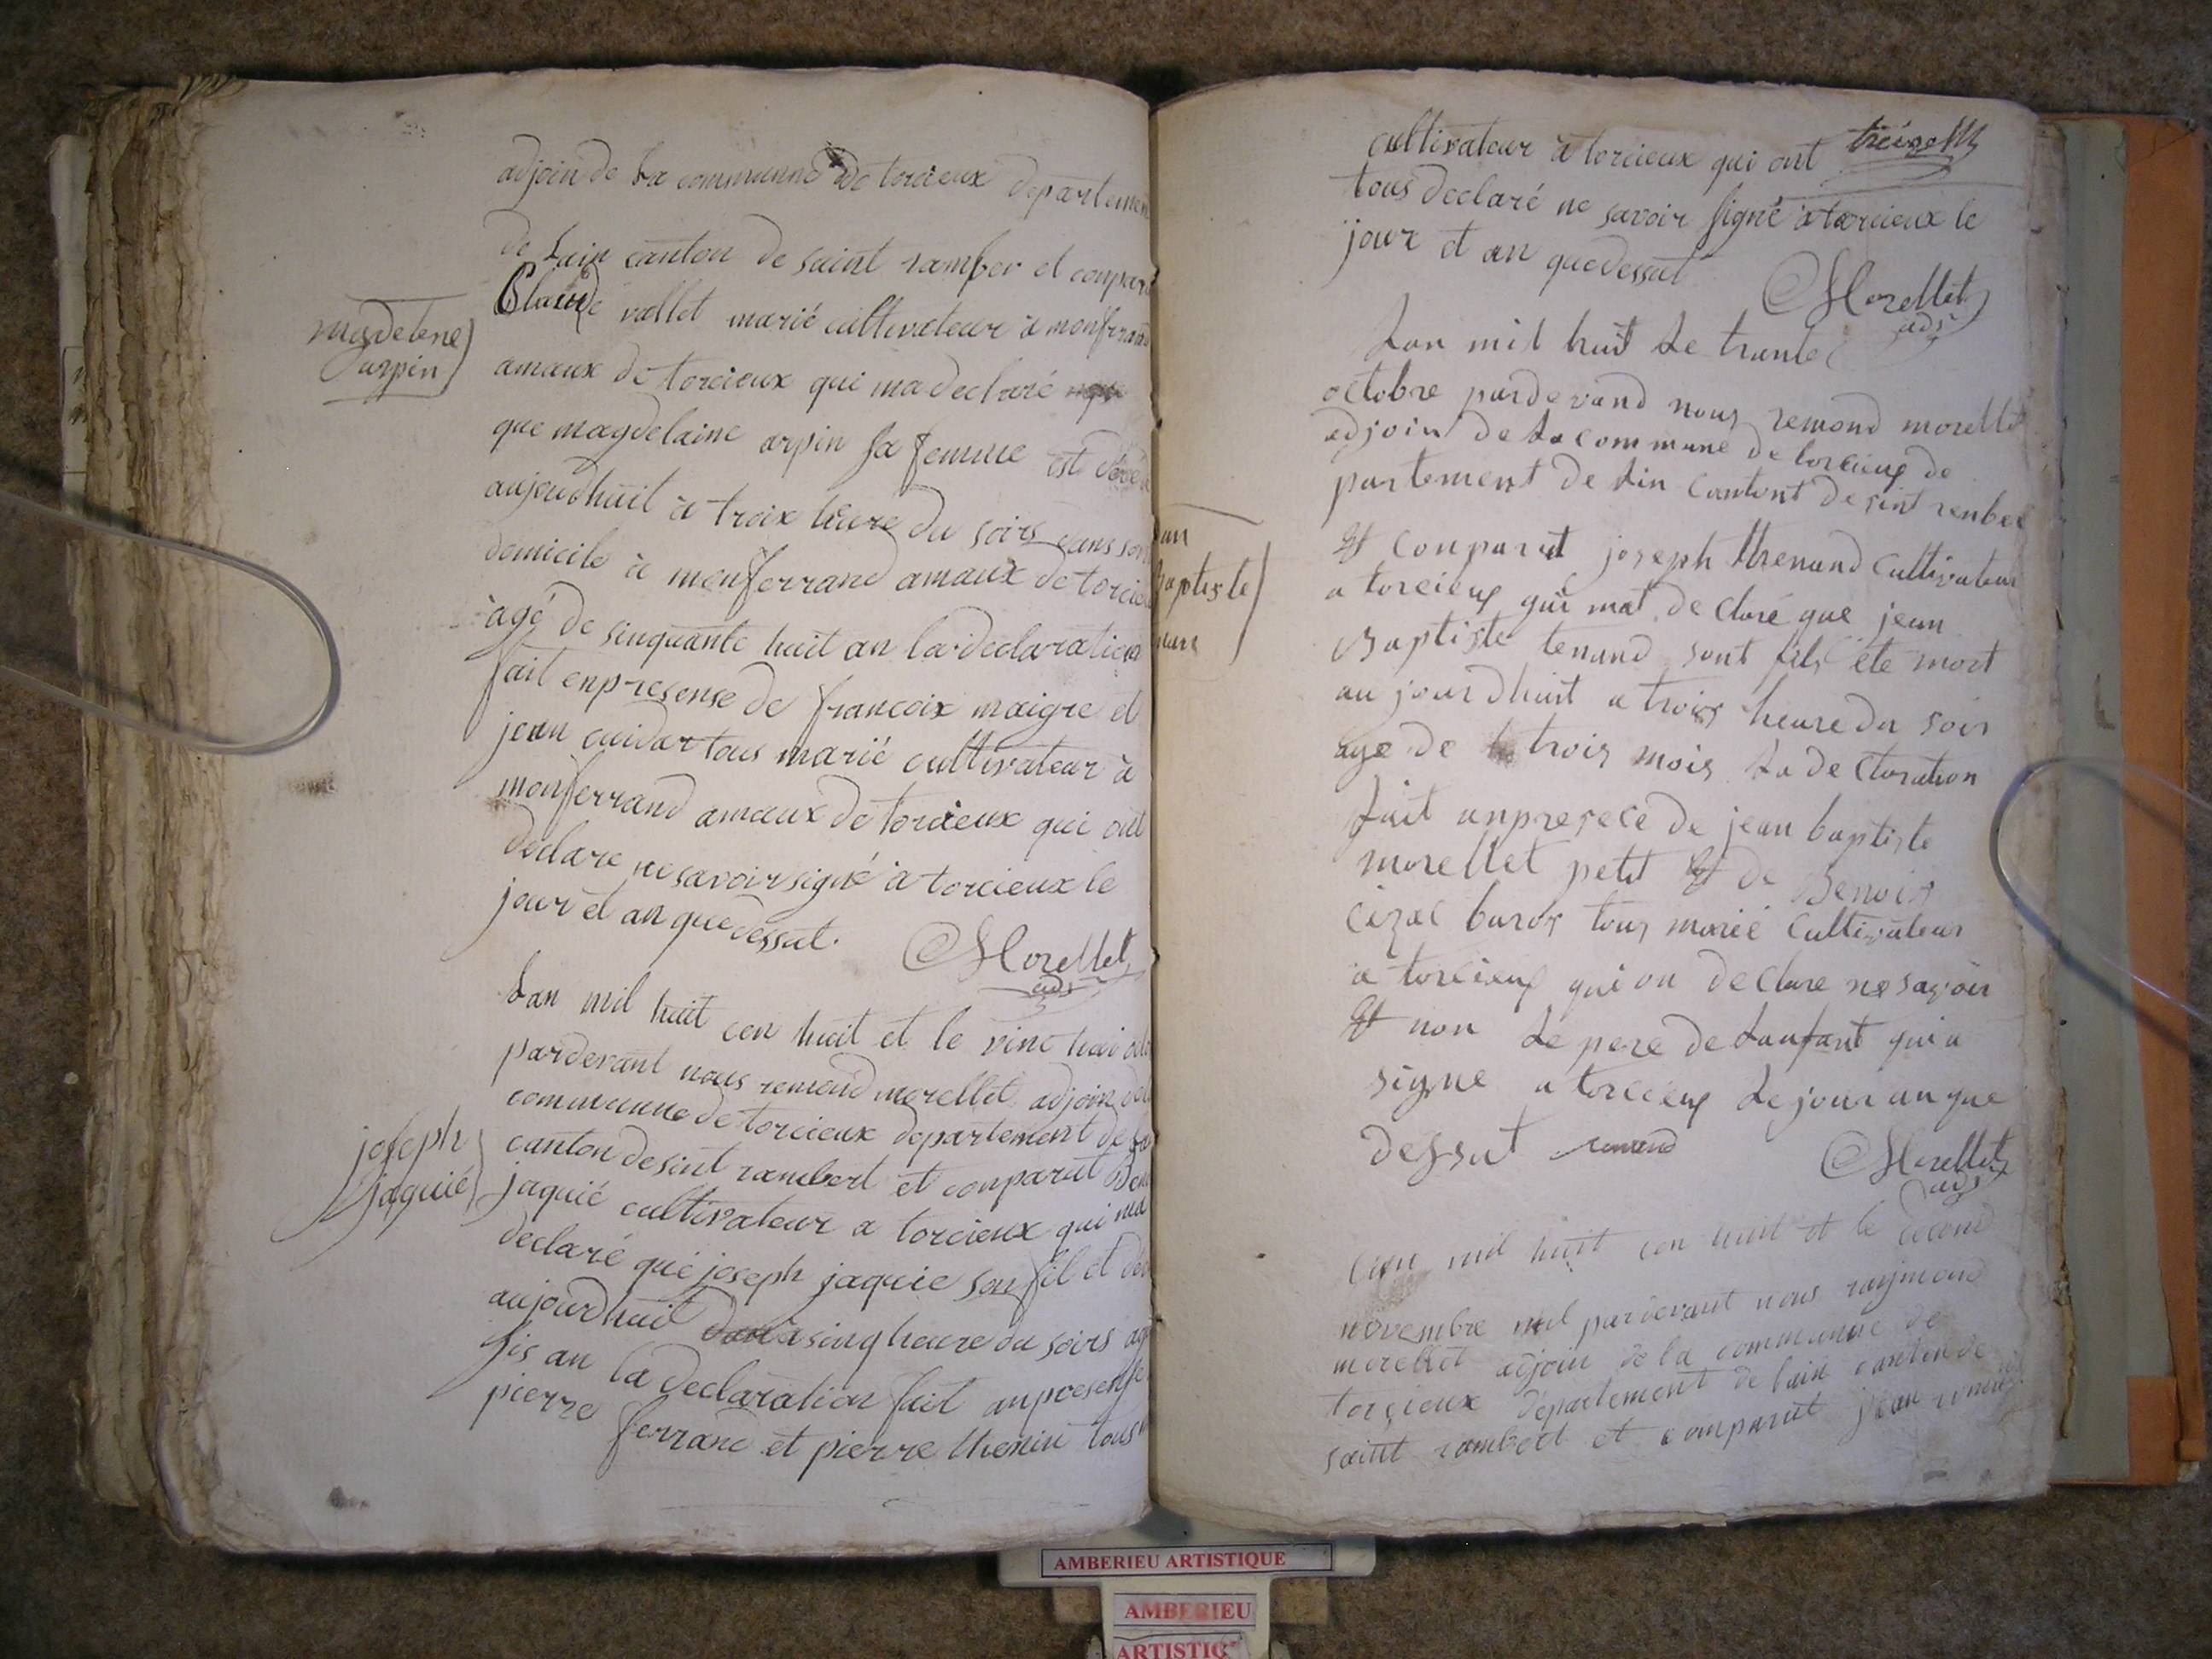 adjoin de la commune de torcieux departemen
de Lain canton de saint ramber et conpara
Claude vallet marié cultivateur a monferrand
magdelene
arpin
amaux de torcieux qui ma declaré
que magdelaine arpin sa femme est
aujourdhuit à troix heure du soirs dans son
domicile à monferrand amaux de torcie
agé de sinquante huit an la declaration
fait enpresense de francoix maigre et
jean cuidar tous marié cultivateur à
monferrand amaux de torcieux qui ont
declare ne savoir signé à torcieux le
jour et an que dessut.
Morellet
adj
Lan mil huit cen huit et le vint huit
pardevant nous remond morellet adjoin de
commune de torcieux departement de
joseph
jaquié
canton de sint rambert et conparut
jaquié cultivateur a torcieux qui ma
declaré que joseph jaquie son fil et
aujourdhuit a sinq heure du soirs
sis an la declaration fait anpresense
pierre ferrand et pierre thenin tous
cultivateur à torcieux qui ont
tous declaré ne savoir signé à torcieux le
jour et an que dessut
Morellet
adj
Lan mil huit Le trante
octobre pardevand nous remond morellet
adjoin de La commune de torcieux de
partement de Lin Cantont de sint renber
et Conparut joseph thenand Cultivateur
an
baptiste
a torcieux qui mat declaré que jean
Baptiste tenand sont fils éte mort
au jourdhuit a trois heure du soir
age de trois mois La declaration
fait anpresece de jean baptiste
morellet petit et de Benoit
cezac baros tous marié Cultivateur
a torcieux qui on declare ne savoir
et non Le pere de Lanfant qui a
signe a torcieux Le jour an que
dessut
Morellet
adj
Lan mil huit cen huit et le second
novembre mil pardevant nous raymond
morellet adjoin de la commune de
torcieux departement de lain canton de
saint rambert et comparut jean
AMBERIEU ARTISTIQUE
AMBERIEU
ARTISTIQ